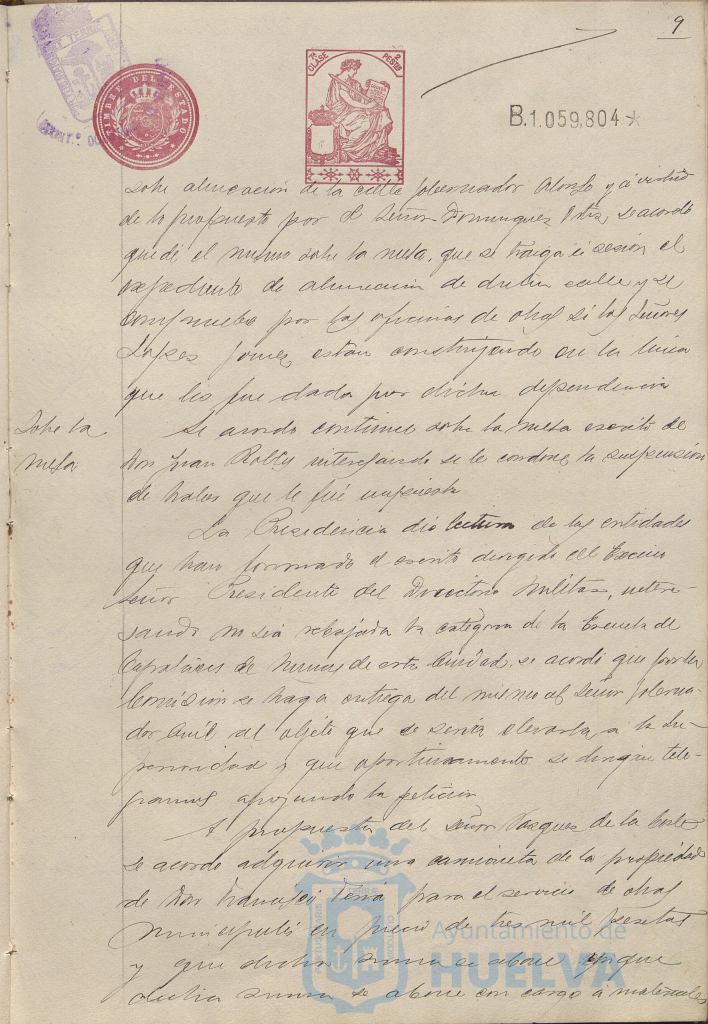 9
7ª CLASE 2 PESETAS
TIMBRE DEL ESTADO
B.1.059.804
sobre alineación de la calle Gobernador Alonso y a virtud
de lo propuesto por el Señor Dominguez Ortiz, se acordó
quede el mismo sobre la mesa, que se traiga a sesión el
expediente de alineación de dicha calle y se
compruebe por las oficinas de obras si los Señores
Lopez Gomez estan construyendo en la linea
que les fue dada por dicha dependencia
Sobre la
mesa
Se acordó continue sobre la mesa escrito de
Don Juan Rolly interesando se le condone la suspensión
de haber que le fué impuesta
La Presidencia dió lectura de las entidades
que han formado el escrito dirigido al Excmo
Señor Presidente del Directorio Militar, intere-
sando no sea rebajada la categoria de la Escuela de
Capataces de Minas de esta Ciudad, se acordó que por la
Comisión se haga entrega del mismo al Señor Goberna-
dor Civil al objeto que se sirva elevarla a la Su-
perioridad y que oportunamente se dirijan tele-
gramas apoyando la petición
A propuesta del Señor Vazquez de la Corte
se acordo adquirir una camioneta de la propiedad
de Don Francisco para el servicio de obras
municipales en precio de tres mil pesetas
y que dicha suma se abone y que
dicha suma se abone con cargo á materiales
Ayuntamiento de
HUELVA